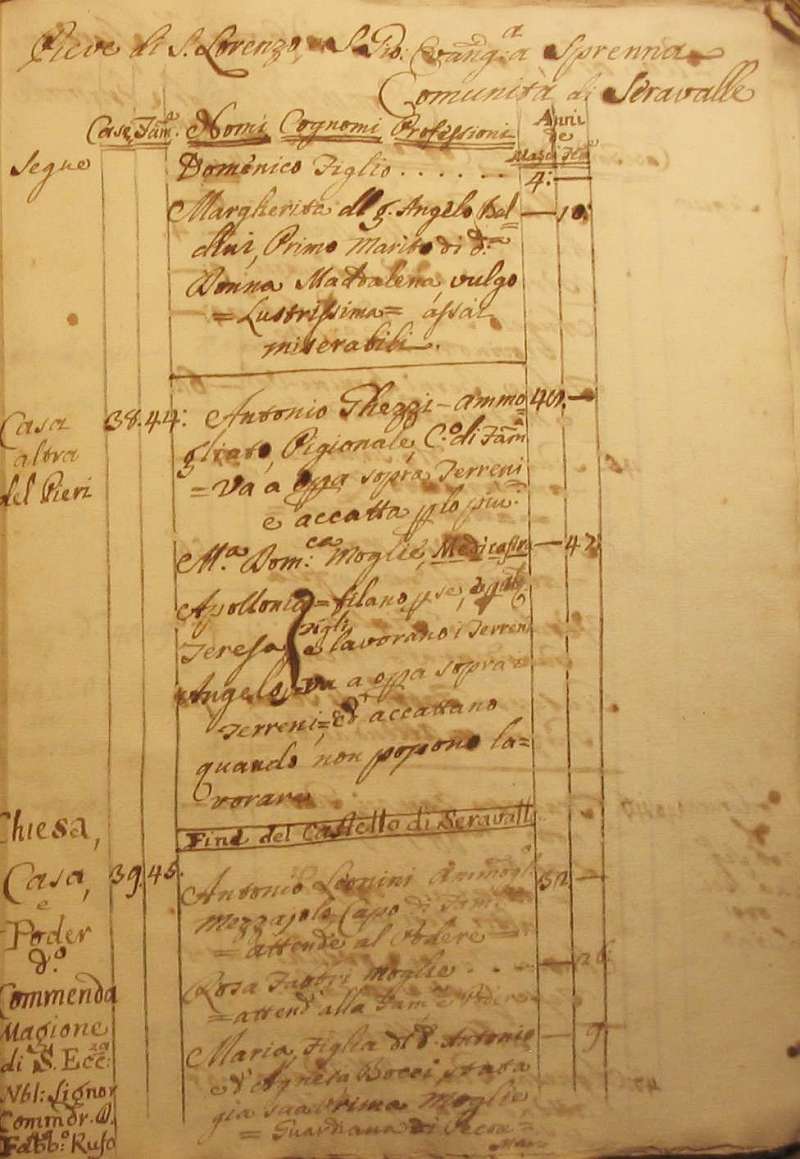 Pieve di S. Lorenzo, e S. Gio: Evang.a a Sprenna
Comunità di Seravalle
Case, Fam.e Nomi Cognomi Professioni Anni
de
Mas. Fem.
segue Domenico Figlio . . . . . . 4: —
Margherita del q. Angelo Bal= — 10:
dini, Primo Marito di d.a
Donna Maddalena, vulgo
= Lustrissima = assai
miserabili .
Casa 38. 44: Antonio Ghezzi - ammo= 40. —
altra gliato, Pigionale, C.o di Fam.a
del Pieri = Va a opa sopra Terreni
e accatta p lo più:
M.a Dom.ca Moglie, — 47:
Apollonia = filano p se, e
Teresa Figli e lavorano i Terreni
Angelo, Va a opa sopra i
Terreni, ed accattano
quando non possono la=
vorare
Fine del Castello di Seravalle
Chiesa, 39. 45. Antonio Leonini Ammogl.
Casa, Mezzajolo Capo di Fam.a
e = attende al Podere =
Poder Rosa moglie . . —
d.o = attend. alla Fam.a e Podere
Commenda Maria, Figlia di d. Antonio — 9
Magione e d' Agnesa Bocci stata
di S. Ecc:za già sua Prima Moglie
Nbl: Signor = Guardiana di
Commdr. D.
Fabb.o Rufo